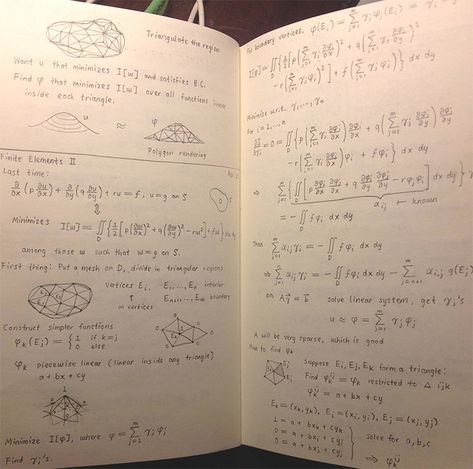 Triangulate the region
Want u that minimizes I[w] and satisfies B.C.
Find φ that minimizes I[w] over all functions linear
inside each triangle.
u ≈ φ
Polygon rendering
Finite Elements II
Last time:
∂/∂x (p ∂u/∂x) + ∂/∂y (q ∂u/∂y) + ru = f, u=g on S
D
S
Minimizes I[w] = ∬_D {½[p(∂w/∂x)² + q(∂w/∂y)² - rw²] + fw} dx dy
among those w such that w=g on S.
First thing: Put a mesh on D, divide in triangular regions
vertices E_i, E_1, ..., E_n interior
m vertices E_n+1, ..., E_m boundary
Construct simpler functions
φ_k(E_j) = { 1 if k=j
0 else
φ_k piecewise linear (linear inside any triangle)
a + bx + cy
Minimize I[φ], where φ = Σ_{j=1}^{m} γ_j φ_j
Find γ_j's.
For boundary vertices, φ(E_i) = Σ_{j=1}^{m} γ_j φ_j(E_i) = γ_i
I[φ] = ∬_D {½[p(Σ_{j=1}^{m} γ_j ∂φ_j/∂x)² + q(Σ_{j=1}^{m} γ_j ∂φ_j/∂y)²
- r(Σ_{j=1}^{m} γ_j φ_j)²] + f(Σ_{j=1}^{m} γ_j φ_j)} dx dy
Minimize w.r.t. γ_1, ..., γ_n
For i = 1, ..., n
∂I/∂γ_i = 0 = ∬_D {p(Σ_{j=1}^{m} γ_j ∂φ_j/∂x) ∂φ_i/∂x + q(Σ_{j=1}^{m} γ_j ∂φ_j/∂y) ∂φ_i/∂y
- r(Σ_{j=1}^{m} γ_j φ_j) φ_i + fφ_i} dx dy
⇒ Σ_{j=1}^{m} {∬_D [p ∂φ_j/∂x ∂φ_i/∂x + q ∂φ_j/∂y ∂φ_i/∂y - rφ_iφ_j] dx dy} γ_j
α_ij ← known
= -∬_D fφ_i dx dy
Then Σ_{j=1}^{m} α_ij γ_j = -∬_D fφ_i dx dy
⇒ Σ_{j=1}^{n} α_ij γ_j = -∬_D fφ_i dx dy - Σ_{j=n+1}^{m} α_i,j g(E_j)
Aγ = b solve linear system, get γ_j's
u ≈ φ = Σ_{j=1}^{m} γ_j φ_j
A will be very sparse, which is good
How to find φ_k
Suppose E_i, E_j, E_k form a triangle:
Find φ_k^ij = φ_k restricted to Δ ijk
φ_k^ij = a + bx + cy
E_k = (x_k, y_k), E_i = (x_i, y_i), E_j = (x_j, y_j)
1 = a + bx_k + cy_k
0 = a + bx_i + cy_i
0 = a + bx_j + cy_j
solve for a, b, c
⇒ φ_k^ij